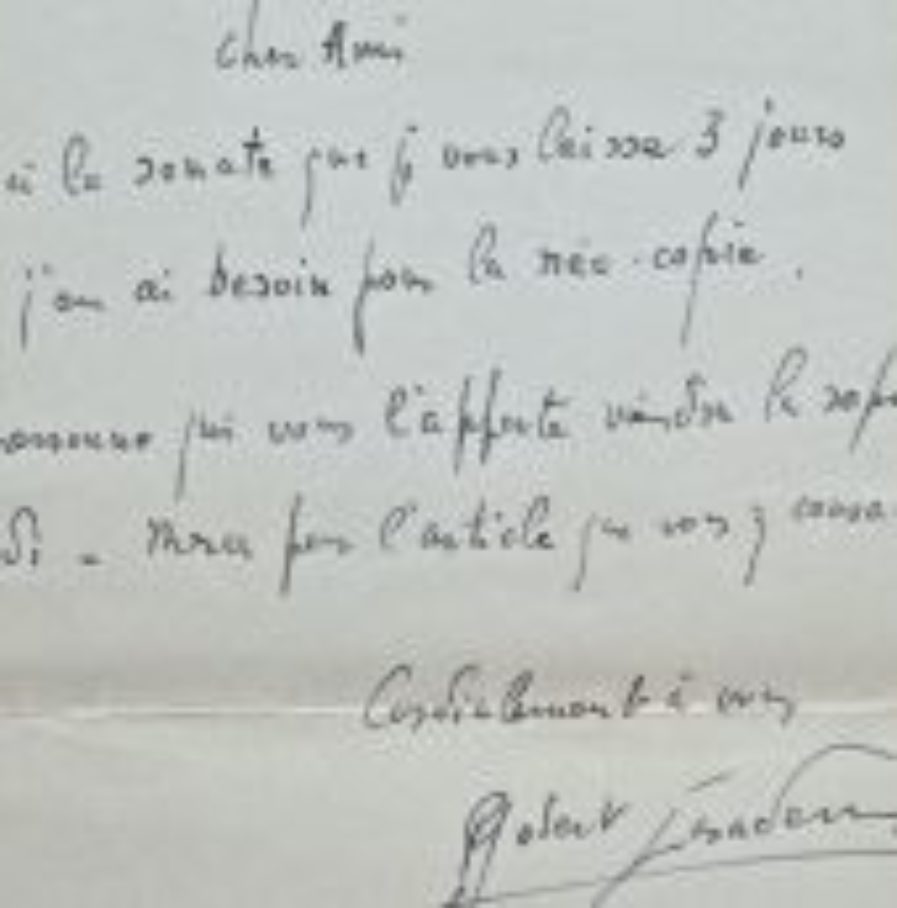 Cher Ami
ci la sonate que je vous laisse 3 jours
j'en ai besoin pour la néo-copie.
personne qui vous l'apporte viendra la
di - Merci pour l'article que vous y
Cordialement à vous
Robert